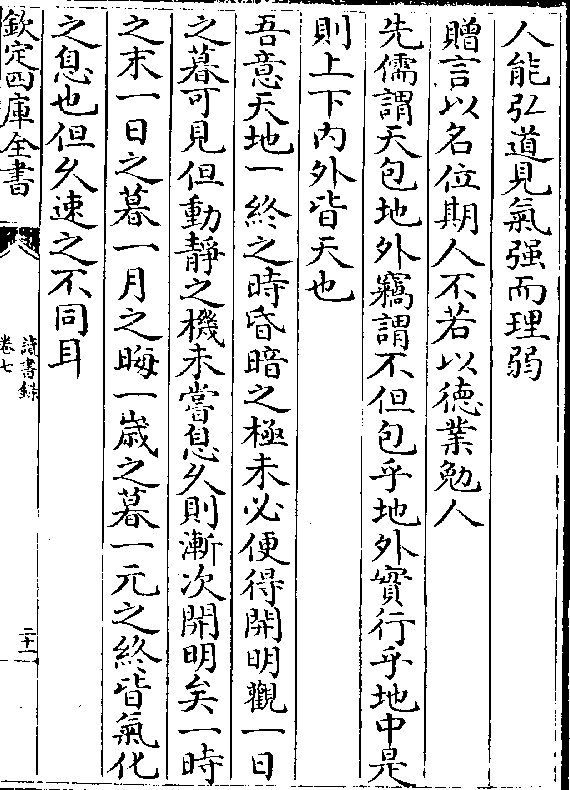 人能弘道見氣强而理弱
贈言以名位期人不若以德業勉人
先儒謂天包地外竊謂不但包乎地外實行乎地中是
則上下内外皆天也
吾意天地一終之時昏暗之極未必便得開明觀一日
之暮可見但動靜之機未嘗息久則漸次開明矣一時
之末一日之暮一月之晦一歳之暮一元之終皆氣化
之息也但久速之不同耳
欽定四庫全書
讀書錄
卷七
二十一